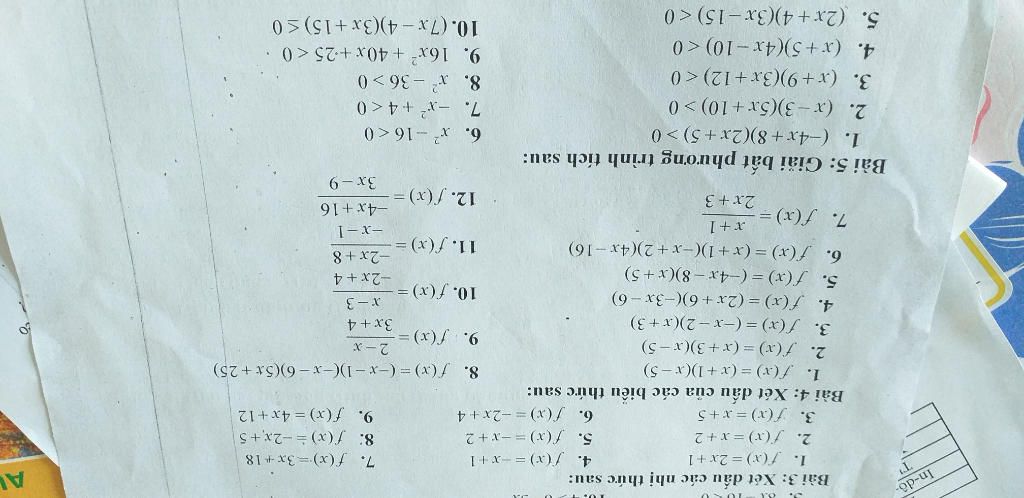 Bài 3: Xét dấu các nhị thức sau:
1. f(x) = 2x+1
4. f(x) = −x+1
7. f(x) = 3x+18
2. f(x) = x+2
5. f(x) = −x+2
8. f(x) = −2x+5
3. f(x) = x+5
6. f(x) = −2x+4
9. f(x) = 4x+12
Bài 4: Xét dấu của các biểu thức sau:
1. f(x) = (x+1)(x−5)
2. f(x) = (x+3)(x−5)
3. f(x) = (−x−2)(x+3)
4. f(x) = (2x+6)(−3x−6)
5. f(x) = (−4x−8)(x+5)
6. f(x) = (x+1)(−x+2)(4x−16)
7. f(x) = (x+1)/(2x+3)
8. f(x) = (−x−1)(−x−6)(5x+25)
9. f(x) = (2−x)/(3x+4)
10. f(x) = (x−3)/(−2x+4)
11. f(x) = (−2x+8)/(−x−1)
12. f(x) = (−4x+16)/(3x−9)
Bài 5: Giải bất phương trình tích sau:
1. (−4x+8)(2x+5) > 0
2. (x−3)(5x+10) > 0
3. (x+9)(3x+12) < 0
4. (x+5)(4x−10) < 0
5. (2x+4)(3x−15) < 0
6. x² −16 < 0
7. −x² + 4 < 0
8. x² − 36 > 0
9. 16x² + 40x + 25 < 0
10. (7x−4)(3x+15) ≤ 0
In-đô